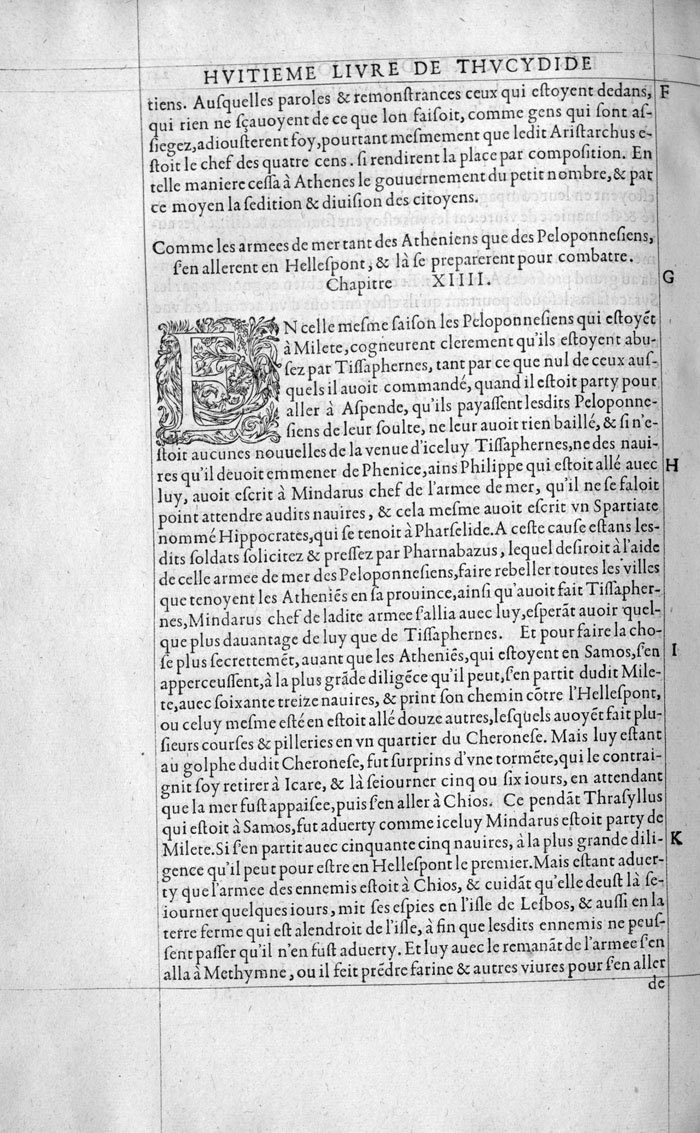 HVITIEME LIVRE DE THVCYDIDE
tiens. Auſquelles paroles & remonſtrances ceux qui eſtoyent dedans, F
qui rien ne ſçauoyent de ce que lon faiſoit, comme gens qui ſont aſ-
ſiegez, adiouſterent foy, pourtant meſmement que ledit Ariſtarchus e-
ſtoit le chef des quatre cens. ſi rendirent la place par compoſition. En
telle maniere ceſſa à Athenes le gouuernement du petit nombre, & par
ce moyen la ſedition & diuiſion des citoyens.
Comme les armees de mer tant des Atheniens que des Peloponneſiens,
ſ'en allerent en Helleſpont, & là ſe preparerent pour combatre.
Chapitre XIIII. G
EN celle meſme ſaiſon les Peloponneſiens qui eſtoyēt
à Milete, cogneurent clerement qu'ils eſtoyent abu-
ſez par Tiſſaphernes, tant par ce que nul de ceux auſ-
quels il auoit commandé, quand il eſtoit party pour
aller à Aſpende, qu'ils payaſſent leſdits Peloponne-
ſiens de leur ſoulte, ne leur auoit rien baillé, & ſi n'e-
ſtoit aucunes nouuelles de la venue d'iceluy Tiſſaphernes, ne des naui-
res qu'il deuoit emmener de Phenice, ains Philippe qui eſtoit allé auec H
luy, auoit eſcrit à Mindarus chef de l'armee de mer, qu'il ne ſe faloit
point attendre audits nauires, & cela meſme auoit eſcrit vn Spartiate
nommé Hippocrates, qui ſe tenoit à Pharſelide. A ceſte cauſe eſtans leſ-
dits ſoldats ſolicitez & preſſez par Pharnabazus, lequel deſiroit à l'aide
de celle armee de mer des Peloponneſiens, faire rebeller toutes les villes
que tenoyent les Atheniēs en ſa prouince, ainſi qu'auoit fait Tiſſapher-
nes, Mindarus chef de ladite armee ſ'allia auec luy, eſperāt auoir quel-
que plus dauantage de luy que de Tiſſaphernes. Et pour faire la cho-
ſe plus ſecrettemēt, auant que les Atheniēs, qui eſtoyent en Samos, ſ'en I
apperceuſſent, à la plus grāde diligēce qu'il peut, ſ'en partit dudit Mile-
te, auec ſoixante treize nauires, & print ſon chemin cōtre l'Helleſpont,
ou celuy meſme eſté en eſtoit allé douze autres, leſquels auoyēt fait plu-
ſieurs courſes & pilleries en vn quartier du Cheroneſe. Mais luy eſtant
au golphe dudit Cheroneſe, fut ſurprins d'vne tormēte, qui le contrai-
gnit ſoy retirer à Icare, & là ſeiourner cinq ou ſix iours, en attendant
que la mer fuſt appaiſee, puis ſ'en aller à Chios. Ce pendāt Thraſyllus
qui eſtoit à Samos, fut aduerty comme iceluy Mindarus eſtoit party de
Milete. Si ſ'en partit auec cinquante cinq nauires, à la plus grande dili- K
gence qu'il peut pour eſtre en Helleſpont le premier. Mais eſtant aduer-
ty que l'armee des ennemis eſtoit à Chios, & cuidāt qu'elle deuſt là ſe-
iourner quelques iours, mit ſes eſpies en l'iſle de Leſbos, & auſſi en la
terre ferme qui eſt alendroit de l'iſle, à fin que leſdits ennemis ne peuſ-
ſent paſſer qu'il n'en fuſt aduerty. Et luy auec le remanāt de l'armee ſ'en
alla à Methymne, ou il feit prēdre farine & autres viures pour ſ'en aller
de